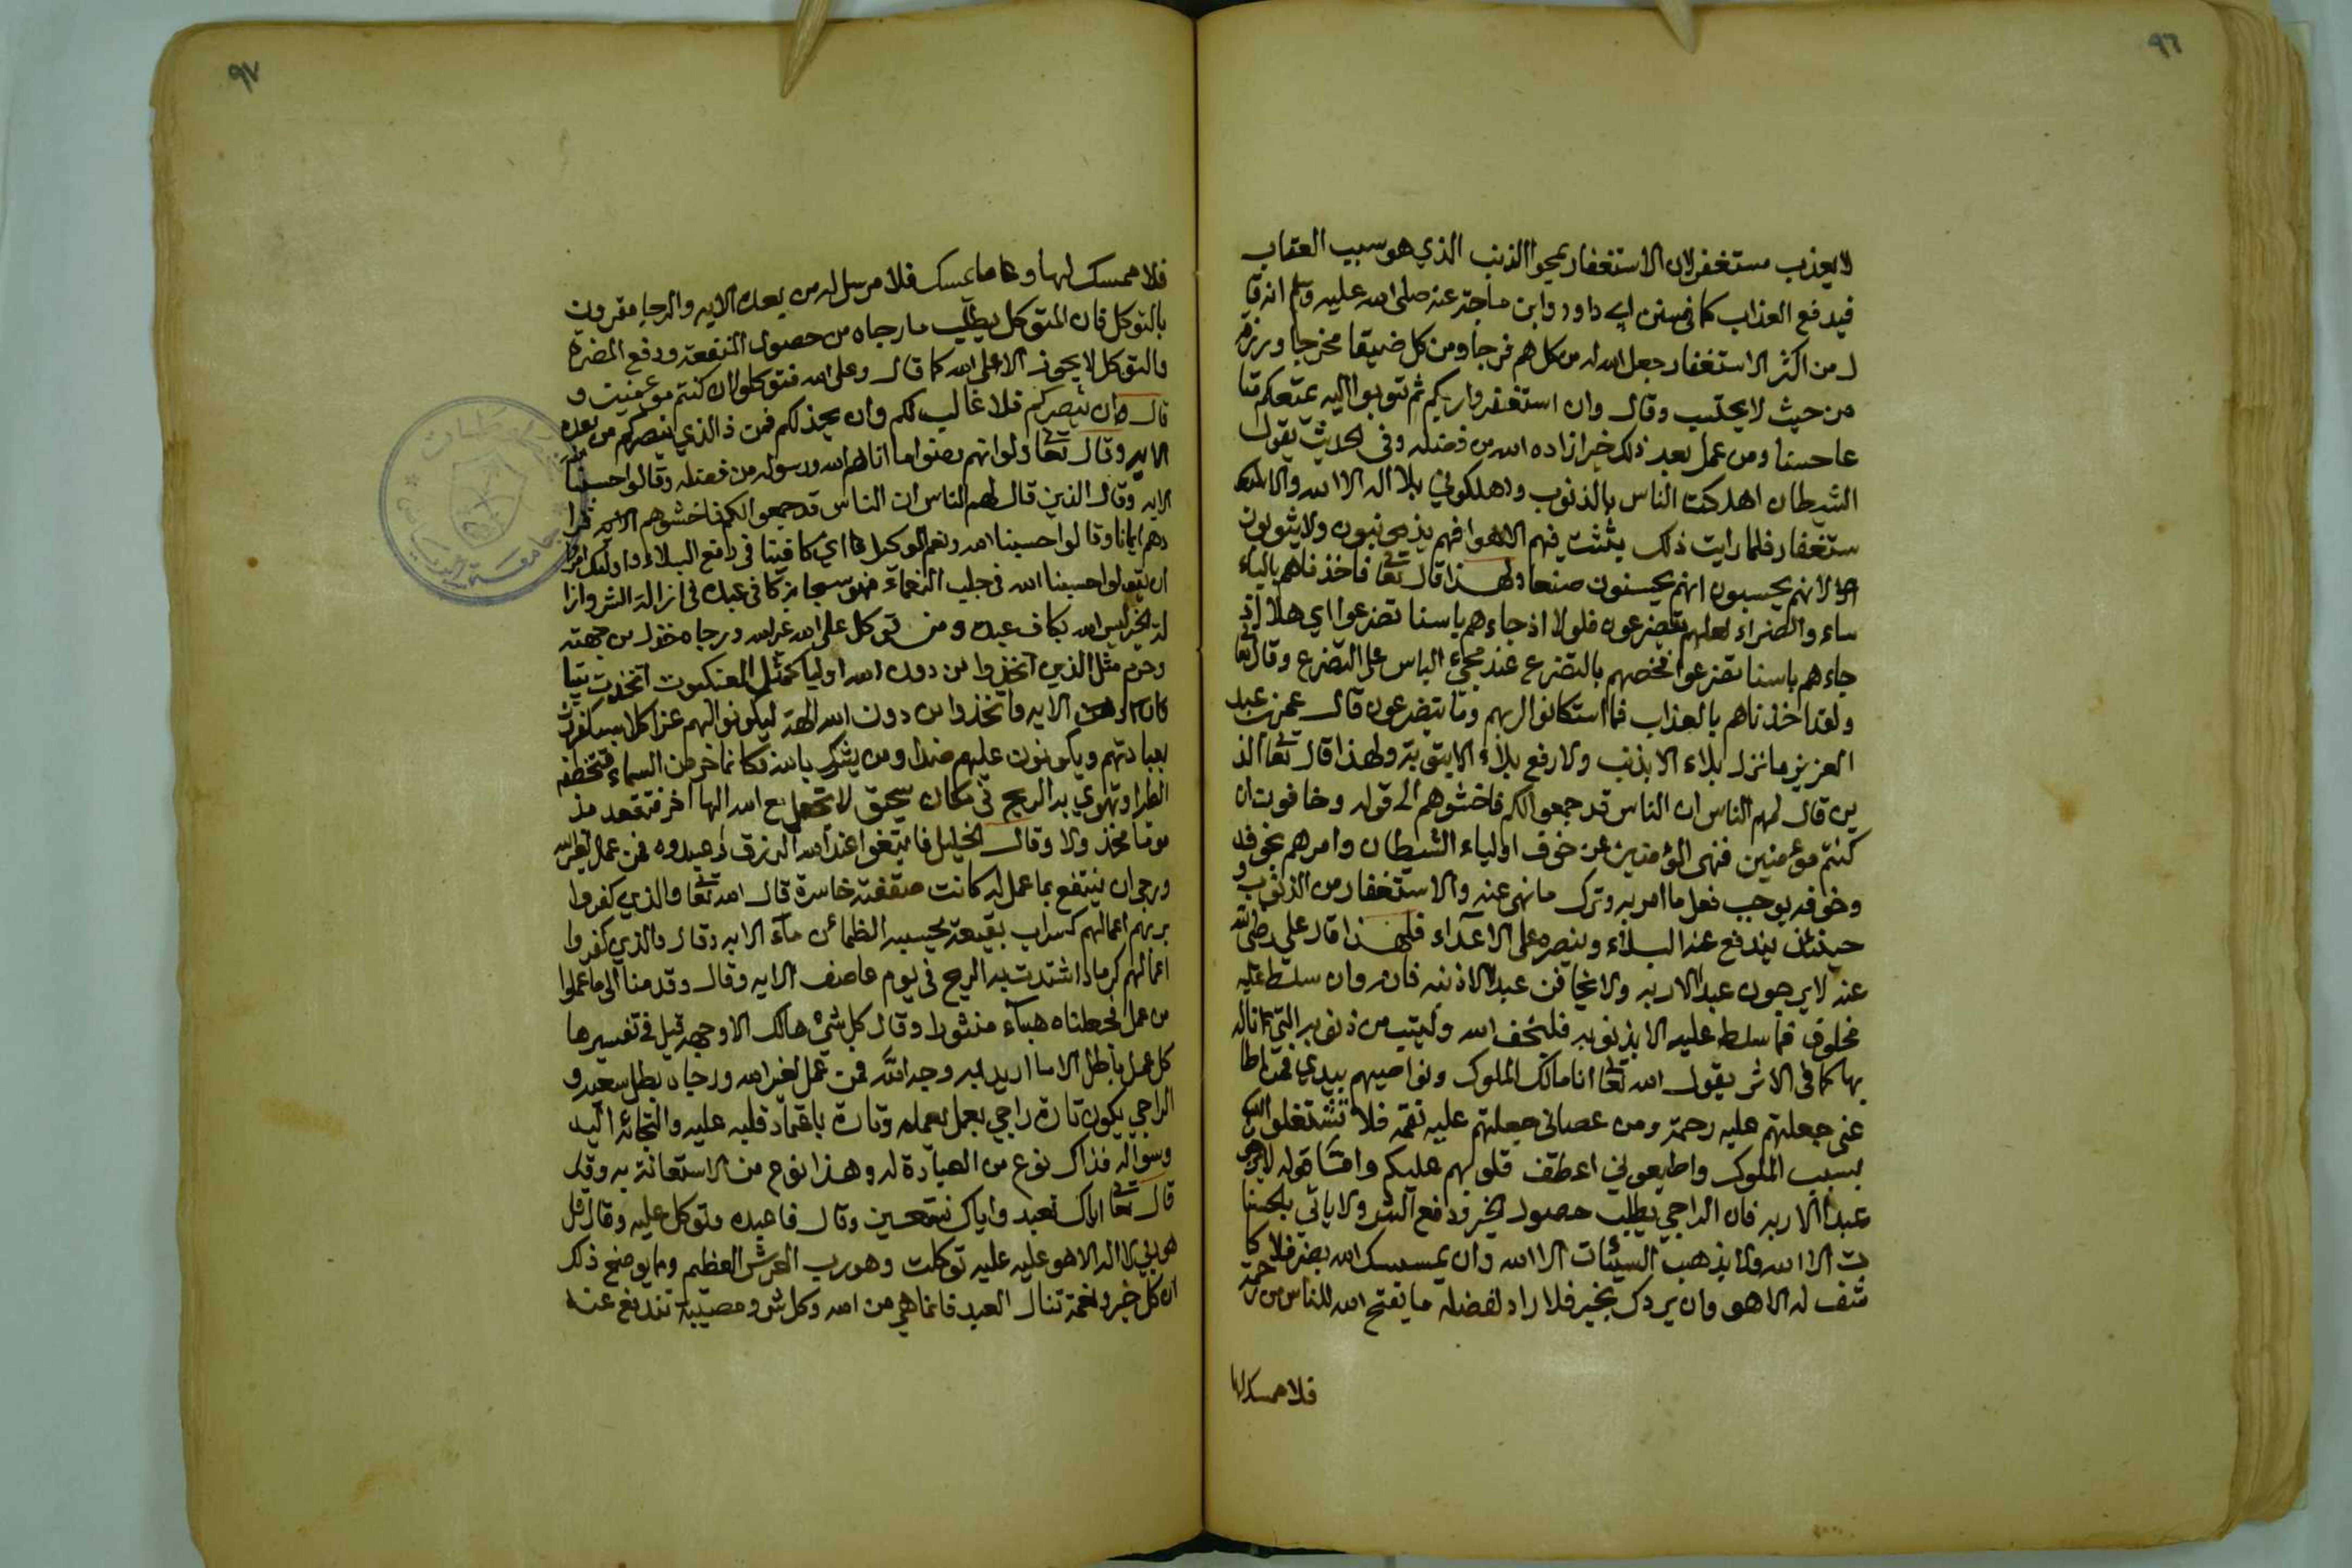 ٩٦
لا يعذب مستغفر لان الاستغفار يمحوا الذنب الذي هو سبب العقاب
فيدفع العذاب كما في سنن ابي داود وابن ماجة عنه صلى الله عليه وسلم انه قا
ل من اكثر الاستغفار جعل الله له من كل هم فرجا ومن كل ضيقا مخرجا ورزقه
من حيث لا يحتسب وقال وان استغفروا ربكم ثم توبوا اليه يمتعكم متا
عا حسنا ومن عمل بعد ذلك خيرا زاده الله من فضله وفي الحديث يقول
الشيطان اهلكت الناس بالذنوب واهلكوني بلا اله الا الله والا
ستغفار فلما رايت ذلك بثثت فيهم الاهوا فهم يذنبون ولا يتوبون
لانهم يحسبون انهم يحسنون صنعا ولهذا قال تعا فاخذناهم بالبأ
ساء والضراء لعلهم يتضرعون فلولا اذ جاءهم باسنا تضرعوا اي هلا اذ
جاءهم باسنا تضرعوا فخصهم بالتضرع عند مجيء الباس على التضرع وقال تعا
ولقد اخذناهم بالعذاب فما استكانوا لربهم وما يتضرعون قال عمر بن عبد
العزيز ما نزل بلاء الا بذنب ولا رفع بلاء الا بتوبة ولهذا قال تعا الذ
ين قال لهم الناس ان الناس قد جمعوا لكم فاخشوهم الى قوله وخافون ان
كنتم مؤمنين فنهى المؤمنين عن خوف اولياء الشيطان وامرهم بخوفه
وخوفه يوجب فعل ما امر به وترك ما نهى عنه والاستغفار من الذنوب و
حينئذ يندفع عنه البلاء وينصره على الاعداء فلهذا قال علي رضي الله
عنه لا يرجون عبد الا ربه ولا يخافن عبد الا ذنبه فان وان سلط عليه
مخلوق فما سلط عليه الا بذنوبه فليخف الله وليتب من ذنوبه التي ناله
بها كما في الاثر يقول الله تعا انا مالك الملوك ونواصيهم بيدي فمن اطا
عني جعلتهم عليه رحمة ومن عصاني جعلتهم عليه نقمة فلا تشتغلوا
بسبب الملوك واطيعوني اعطف قلوبهم عليكم وامّا قوله لا يرجون
عبد الا ربه فان الراجي يطلب حصول الخير ودفع الشر ولا ياتي بالحسنا
ت الا الله ولا يذهب السيئات الا الله وان يمسسك الله بضر فلا كا
شف له الا هو وان يردك بخير فلا راد لفضله ما يفتح الله للناس من رحمة
فلا ممسك لها
٩٧
فلا ممسك لها وما يمسك فلا مرسل له من بعده الايه والرجا مقرون
بالتوكل فان المتوكل يطلب ما رجاه من حصول المنفعة ودفع المضرة
والتوكل لا يجوز الا على الله كما قال وعلى الله فتوكلوا ان كنتم مؤمنين و
قال ان ينصركم فلا غالب لكم وان يخذلكم فمن ذا الذي ينصركم من بعده
الايه وقال تعا ولو انهم رضوا ما اتاهم الله ورسوله من فضله وقالوا حسبنا
الايه وقال الذين قال لهم الناس ان الناس قد جمعوا لكم فاخشوهم الايه فزا
دهم ايمانا وقالوا حسبنا الله ونعم الوكيل اي كافينا في دفع البلاء واولئك امروا
ان يقولوا حسبنا الله في جلب النعماء فهو سبحانه كافي عبده في ازالة الشر وانا
لة الخير اليس الله بكاف عبده ومن توكل على الله غير الله ورجاه خذل من جهته
وحرم مثل الذين اتخذوا من دون الله اوليا كمثل العنكبوت اتخذت بيتا
الايه واتخذوا من دون الله الهة ليكونوا لهم عزا كلا سيكفرون
بعبادتهم ويكونون عليهم ضدا ومن يشرك بالله فكانما خر من السماء فتخطفه
الطير او تهوي به الريح في مكان سحيق لا تجعل مع الله الها اخر فتقعد مذ
موما مخذولا وقال الخليل فابتغوا عند الله الرزق واعبدوه فمن عمل لغير الله
ورجى ان ينتفع بما عمل له كانت صفقته خاسرة قال الله تعا والذي كفروا
بربهم اعمالهم كسراب بقيعة يحسبه الظمائن ماء الايه وقال والذي كفروا
اعمالهم كرماد اشتدت به الريح في يوم عاصف الايه وقال وقدمنا الى ما عملوا
من عمل فجعلناه هباء منثورا وقال كل شئ هالك الا وجهه قيل في تفسيرها
كل عمل باطل الا ما اريد به وجه الله فمن عمل لغير الله ورجاه بطل سعيه و
الراجي يكون تارة راجي بعمل يعمله وتارة باعتماد قلبه عليه والتجائه اليه
وسواله فذاك نوع من العبادة له وهذا نوع من الاستعانة به وقد
قال تعا اياك نعبد واياك نستعين وقال فاعبده وتوكل عليه وقال قل
هو ربي لا اله الا هو عليه توكلت وهو رب العرش العظيم ومما يوضح ذلك
ان كل خير ونعمة تنال العبد فانما هي من الله وكل شر ومصيبة تندفع عنه